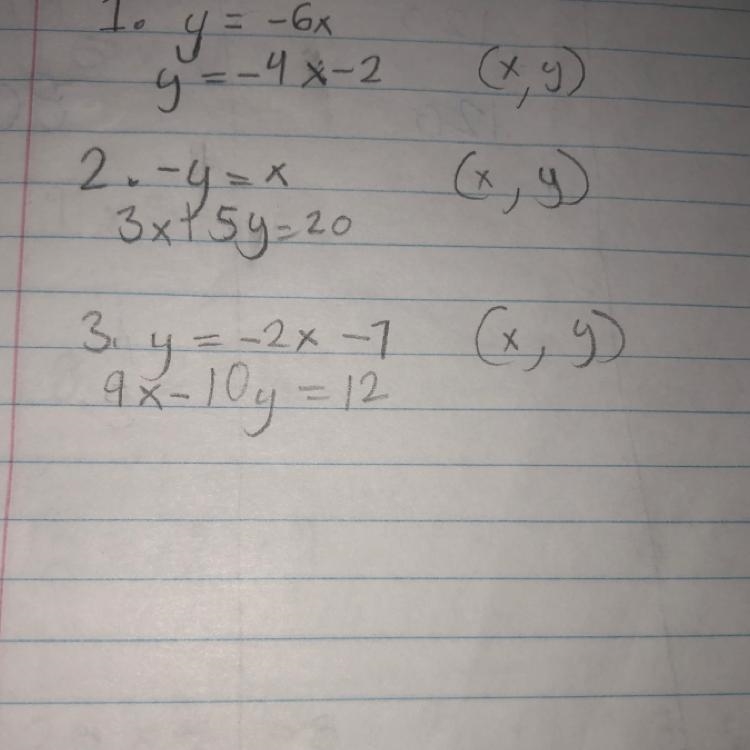 1. y = -6x
y = -4x-2 (x, y)
2. -y = x (x, y)
3x+5y=20
3. y = -2x -7 (x, y)
9x-10y = 12